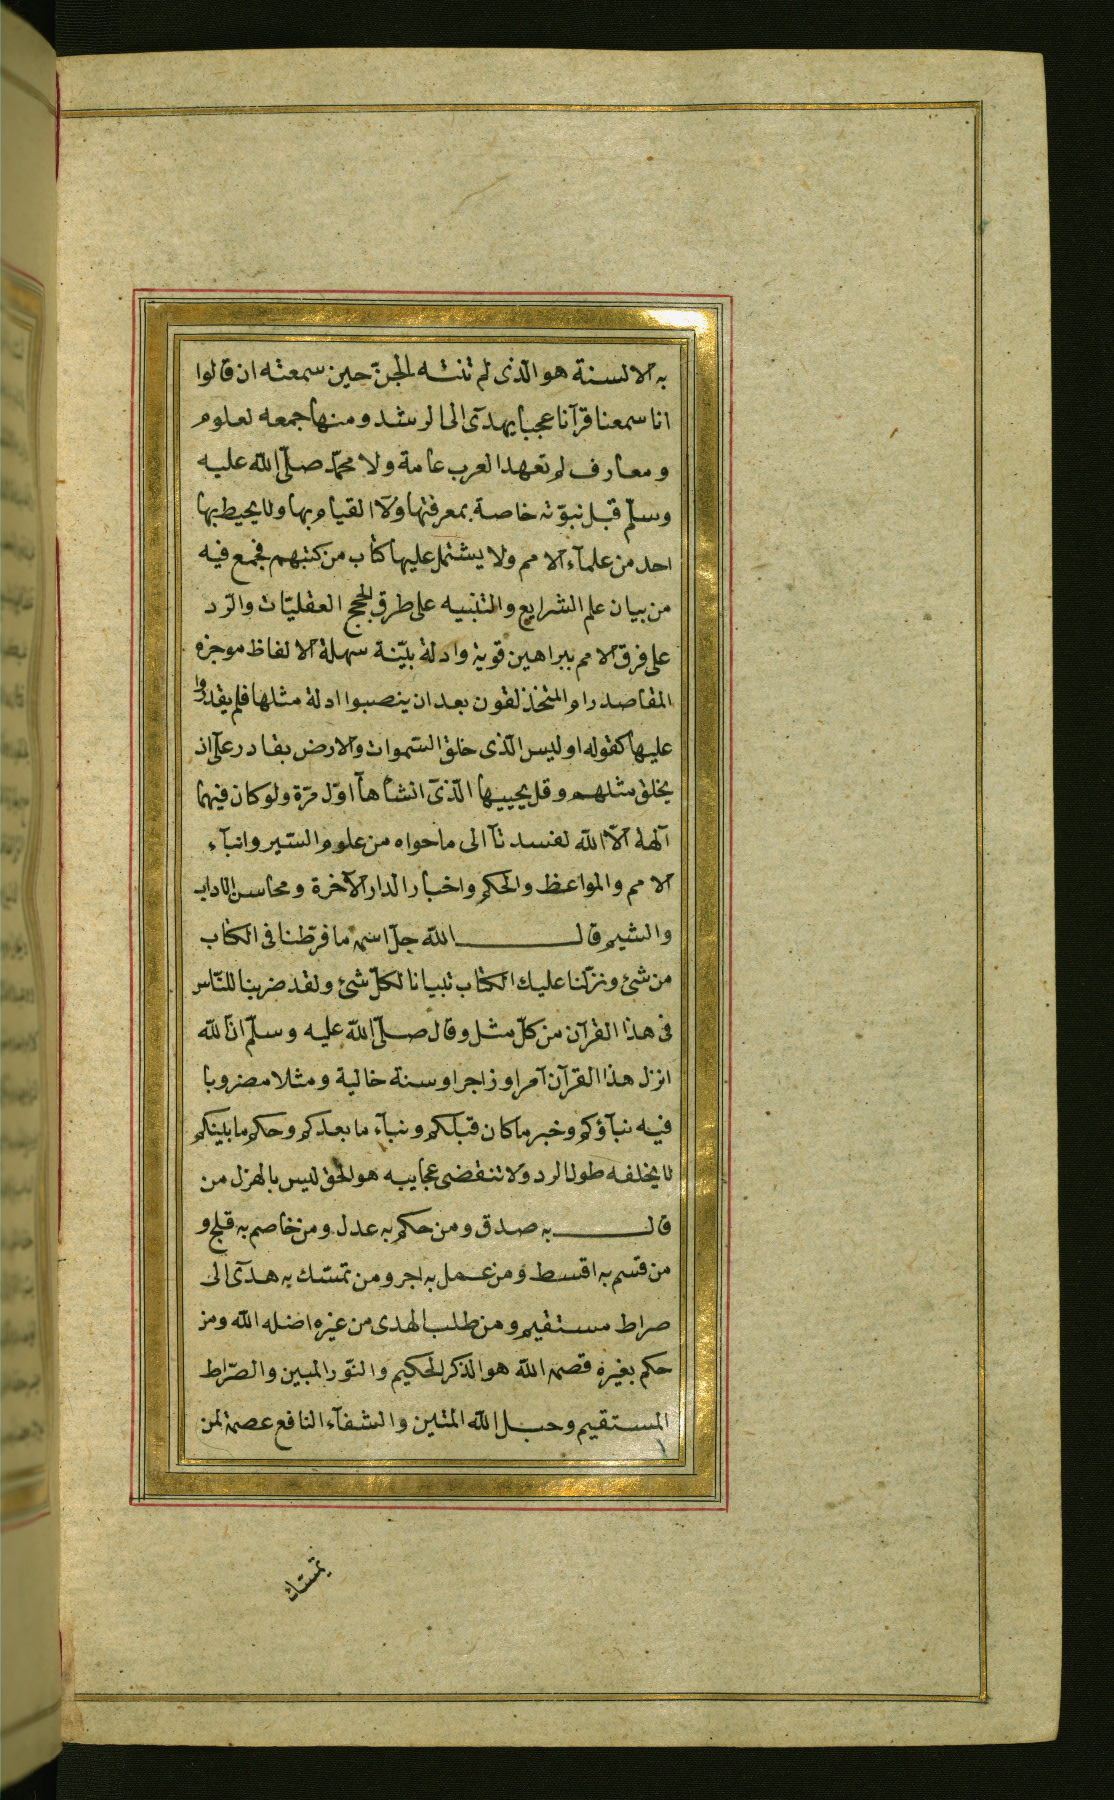 به الالسنة هو الّذى لم تنته الجنّ حين سمعته ان قالوا
انا سمعنا قرآنا عجبا يهدى الى الرشد ومنها جمعه لعلوم
ومعارف لم تعهد العرب عامة ولا محمّد صلّى الله عليه
وسلّم قبل نبوّته خاصة بمعرفتها ولا القيام بها ولا يحيط بها
احد من علمآء الامم ولا يشتمل عليها كتاب من كتبهم فجمع فيه
من بيان علم الشرايع والتنبيه على طرق الحجج العقليّات والرّد
على فرق الامم ببراهين قوية وادلة بيّنة سهلة الالفاظ موجزة
المقاصد رام المتحذلقون بعد ان ينصبوا ادلة مثلها فلم يقدروا
عليها كقوله اوليس الّذى خلق السّموات والارض بقادر على ان
يخلق مثلهم وقل يحييها الّذى انشأها اوّل مرّة ولو كان فيهما
آلهة الّا الله لفسدتا الى ما حواه من علوم السّير وانبآء
الامم والمواعظ والحكم واخبار الدار الآخرة ومحاسن الاداب
والشيم قال الله جلّ اسمه ما فرّطنا فى الكتاب
من شئ ونزّلنا عليك الكتاب تبيانا لكلّ شئ ولقد ضربنا للنّاس
فى هذا القرآن من كلّ مثل وقال صلّى الله عليه وسلّم انّ الله
انزل هذا القرآن آمرا وزاجرا وسنة خالية ومثلا مضروبا
فيه نبآؤكم وخبر ما كان قبلكم ونبآء ما بعدكم وحكم ما بينكم
لا يخلفه طول الرد ولا تنقضى عجايبه هو الحق ليس بالهزل من
قال به صدق ومن حكم به عدل ومن خاصم به فلج و
من قسم به اقسط ومن عمل به اجر ومن تمسّك به هدى الى
صراط مستقيم ومن طلب الهدى من غيره اضله الله ومن
حكم بغيره قصمه الله هو الذكر الحكيم والنّور المبين والصّراط
المستقيم وحبل الله المتين والشفآء النافع عصمة لمن
تمسّك